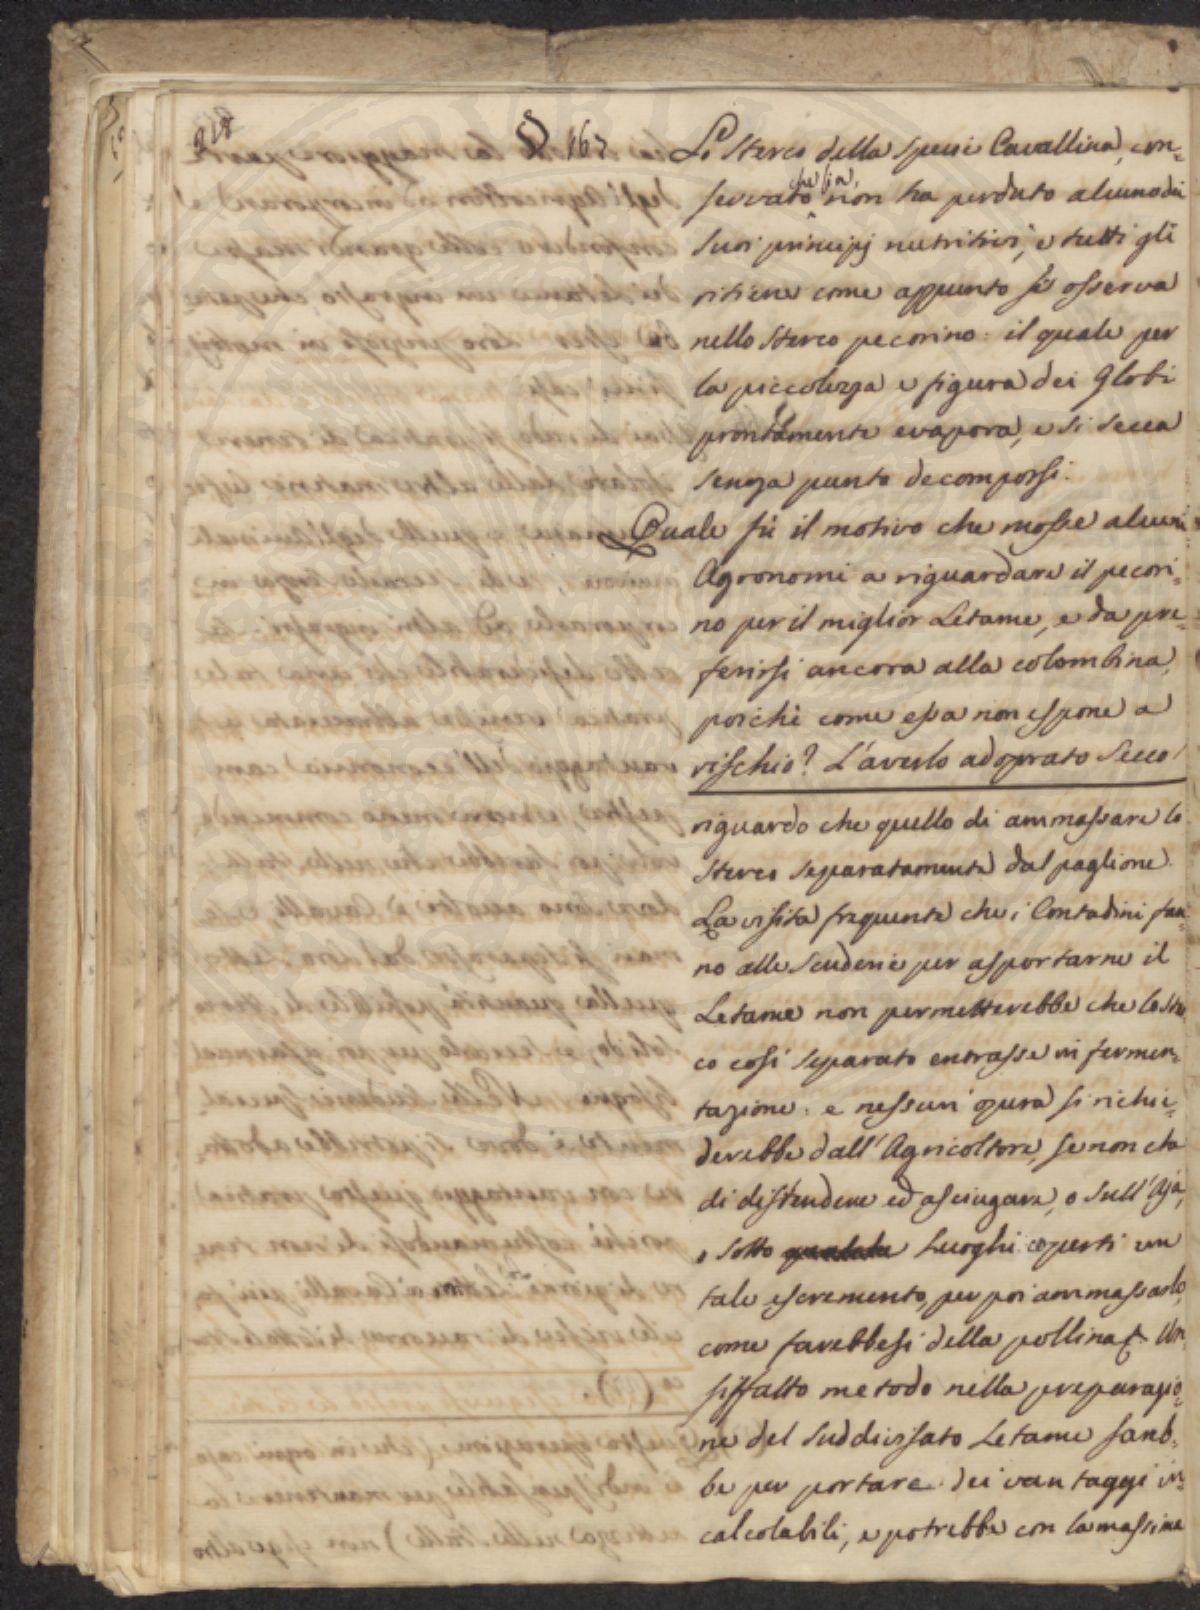 218
§ 167
Lo Sterco della Specie Cavallina, con=
servato che sia, non ha perduto alcuno dei
Suoi principj nutritivi, e tutti gli
ritiene come appunto si osserva
nello Sterco pecorino: il quale per
la piccolezza e figura dei Globi
prontamente evapora, e si secca
senza punto decomporsi.
Quale fù il motivo che mosse alcuni
Agronomi a riguardare il pecori=
no per il miglior Letame, e da pre=
ferirsi ancora alla colombina,
poichè come essa non espone a
rischio? L'averlo adoprato Secco
riguardo che quello di ammassare lo
Sterco Separatamente dal paglione.
La visita frequente che i Contadini fan=
no alle Scuderie per asportarne il
Letame non permetterebbe che lo Ster
co così Separato entrasse in fermen=
tazione: e nessun' opera si richie=
derebbe dall' Agricoltore, se non che
di distendere ed asciugare, o Sull' Aja,
o Sotto Luoghi coperti un
tale escremento, per poi ammassarlo,
come farebbesi della pollina. Un
siffatto metodo nella preparazio=
ne del Suddivisato Letame Sareb=
be per portare dei vantaggi in=
calcolabili, e potrebbe con la massima